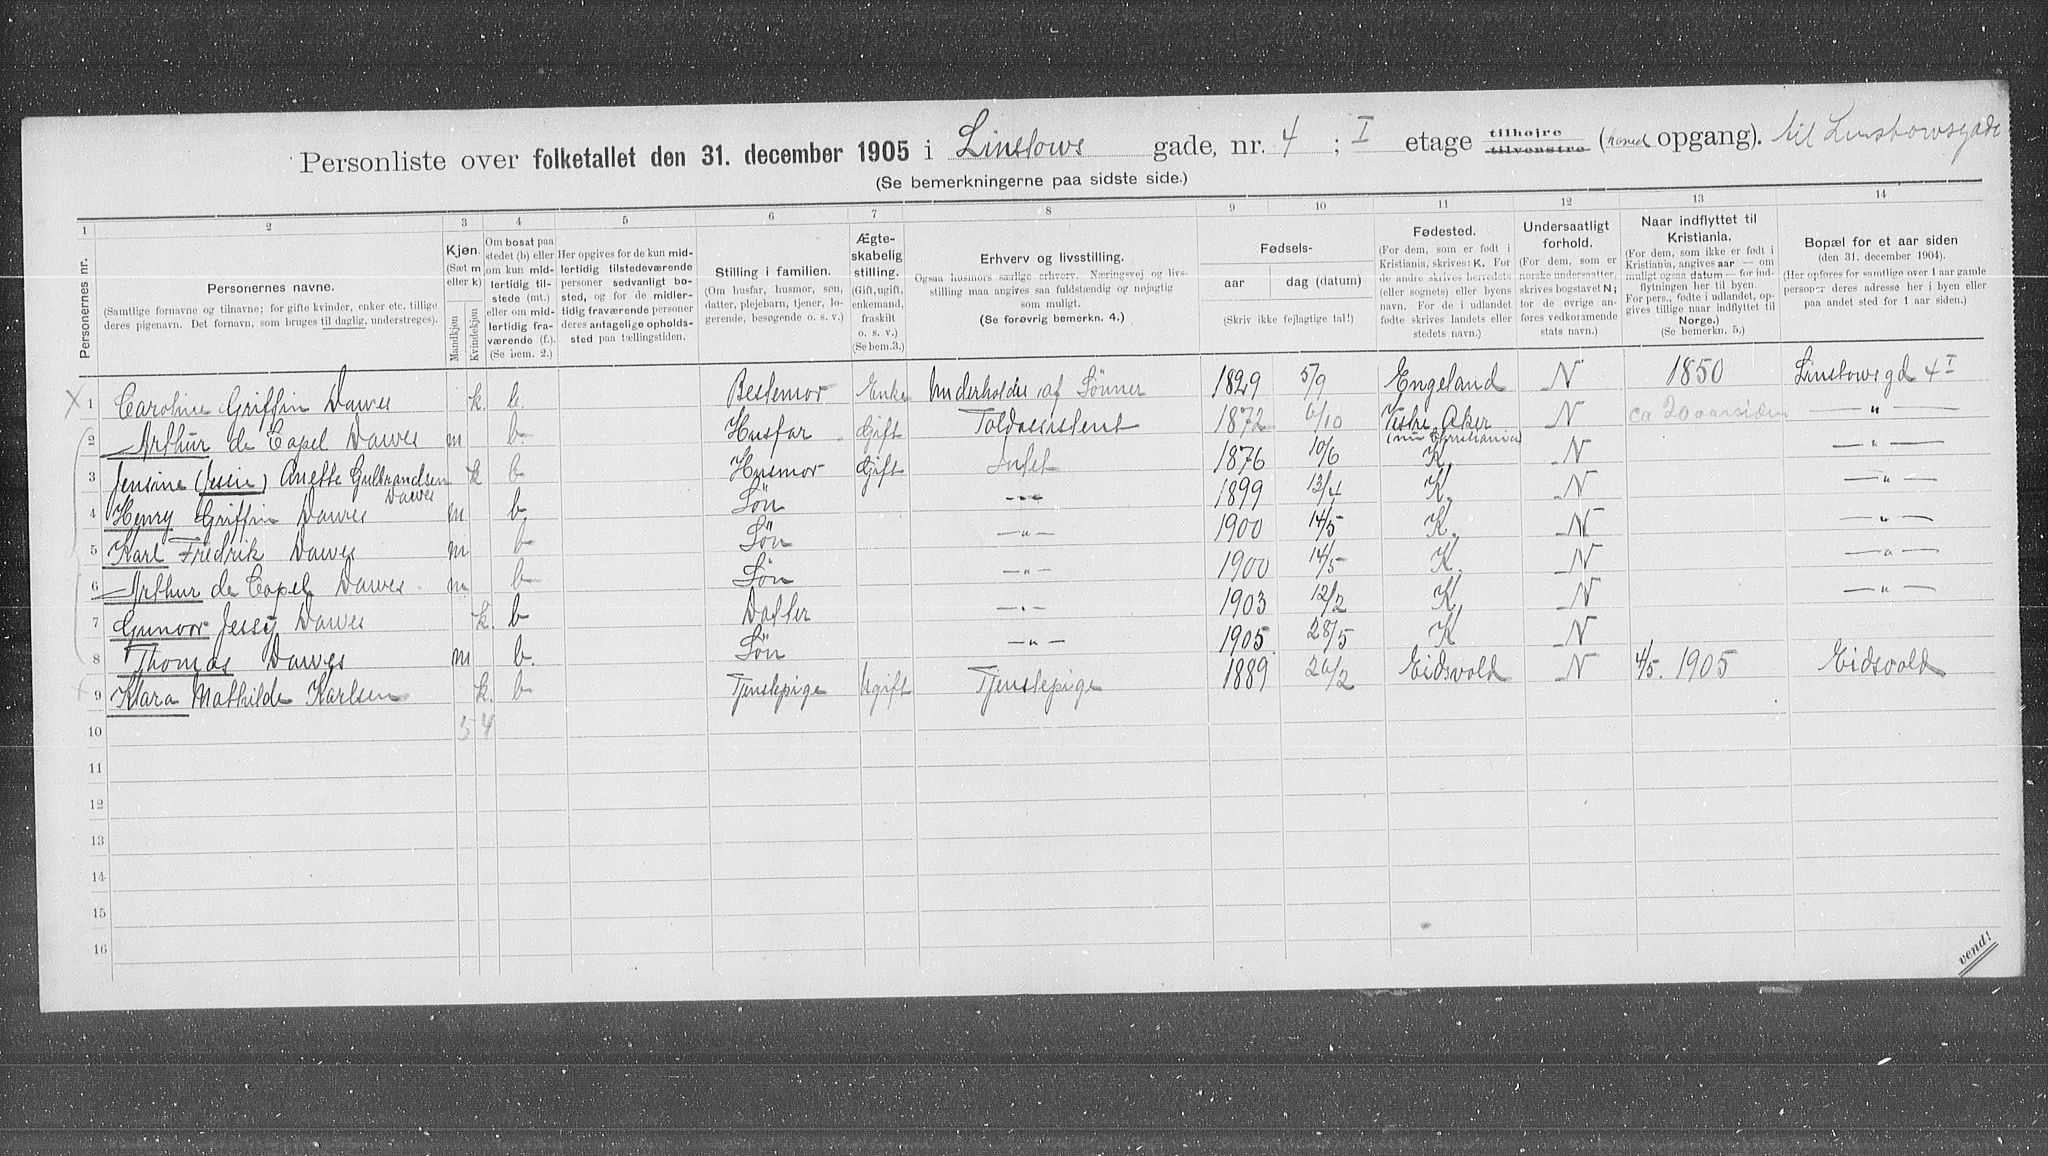 Personliste over folketallet den 31. december 1905 i Linstows gade, nr. 4 ; I etage tilhøire tilvenstre ( opgang). til Linstowsgade
(Se bemerkningerne paa sidste side.)
1 2 3 4 5 6 7 8 9 10 11 12 13 14
Personernes nr.
Personernes navne.
(Samtlige fornavne og tilnavne; for gifte kvinder, enker etc. tillige
deres pigenavn. Det fornavn, som bruges til daglig, understreges).
Kjøn.
(Sæt m
eller k)
Mandkjøn
Kvindekjøn
Om bosat paa
stedet (b) eller
om kun mid-
lertidig til-
stede (mt.)
eller om mid-
lertidig fra-
værende (f.).
(Se bem. 2.)
Her opgives for de kun mid-
lertidig tilstedeværende
personer sedvanligt bo-
sted, og for de midler-
tidig fraværende personer
deres antagelige opholds-
sted paa tællingstiden.
Stilling i familien.
(Om husfar, husmor, søn,
datter, plejebarn, tjener, lo-
gerende, besøgende o. s. v.)
Ægte-
skabelig
stilling.
(Gift, ugift,
enkemand,
fraskilt
o. s. v.)
(Se bem. 3.)
Erhverv og livsstilling.
Ogsaa husmors særlige erhverv. Næringsvej og livs-
stilling maa angives saa fuldstændig og nøjagtig
som muligt.
(Se forøvrig bemerkn. 4.)
Fødsels-
aar dag (datum)
(Skriv ikke fejlagtige tal!)
Fødested.
(For dem, som er født i
Kristiania, skrives: K. For
de andre skrives herredets
(eller sognets) eller byens
navn. For de i udlandet
fødte skrives landets eller
stedets navn.)
Undersaatligt
forhold.
(For dem, som er
norske undersaatter,
skrives bogstavet N;
for de øvrige an-
føres vedkommende
stats navn.)
Naar indflyttet til
Kristiania.
(For dem, som ikke er født i
Kristiania, angives aar — om
muligt ogsaa datum — for ind-
flytningen her til byen.
For pers., fødte i udlandet, op-
gives tillige naar indflyttet til
Norge.)
(Se bemerkn. 5.)
Bopæl for et aar siden
(den 31. december 1904).
(Her opføres for samtlige over 1 aar gamle
personer deres adresse her i byen eller
paa andet sted for 1 aar siden.)
X 1 Caroline Griffin Dawes k. b. Bestemor Enke Underholdes af Sønner 1829 5/9 Engeland N 1850 Linstowsgd 4 I
2 Arthur de Capel Dawes m b. Husfar Gift Toldassistent 1872 6/10 Vestre Aker (nu Christiania) N ca 20 aar siden — " —
3 Jensine (Jessie) Anette Gulbrandsen Dawes k b Husmor Gift Intet 1876 10/6 K. N — " —
4 Henry Griffin Dawes m b Søn — " — 1899 13/4 K. N — " —
5 Karl Fredrik Dawes m b Søn — " — 1900 14/5 K. N — " —
6 Arthur de Capel Dawes m b Søn — " — 1900 14/5 K. N — " —
7 Gunvor Jessy Dawes k. b Datter — " — 1903 12/2 K N — " —
8 Thomas Dawes m b. Søn — " — 1905 28/5 K N
9 Klara Mathilde Karlsen k. b Tjenstepige Ugift Tjenstepige 1889 26/2 Eidsvold N 4/5. 1905 Eidsvold
10 5 4
11
12
13
14
15
16
vend!